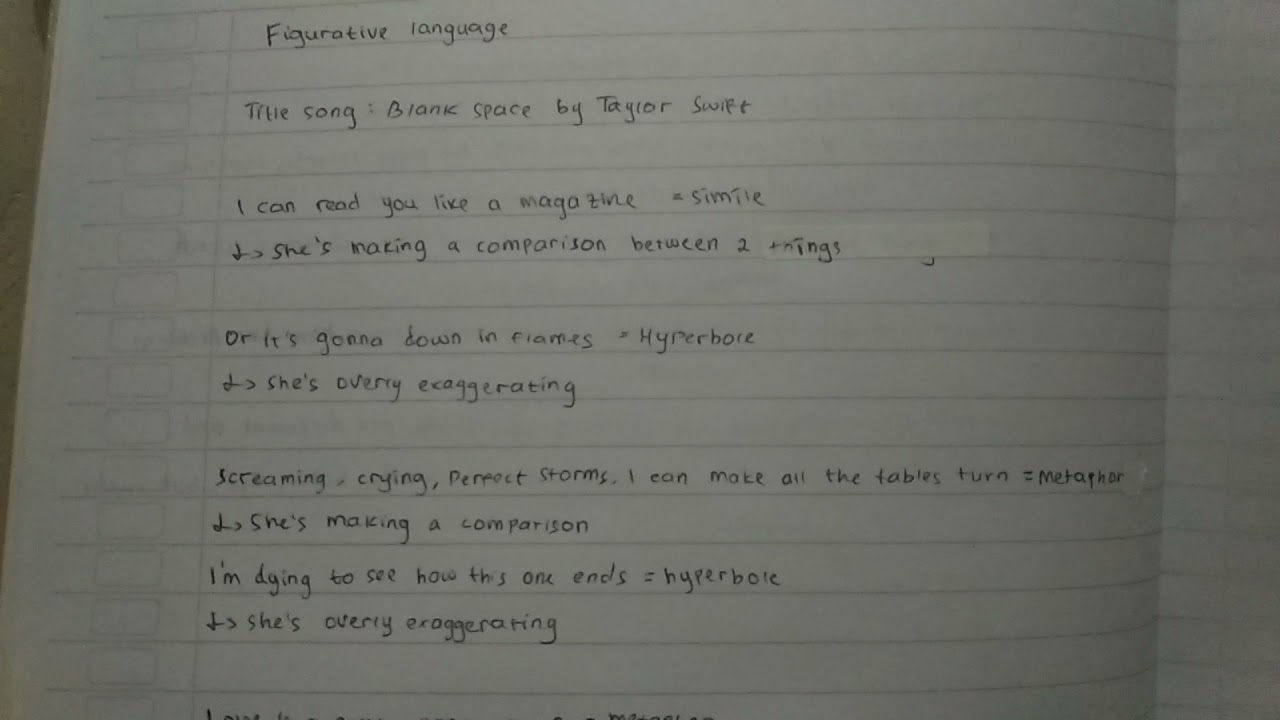 Figurative language
Title song : Blank space by Taylor Swift
I can read you like a magazine = simile
↳ She's making a comparison between 2 things
Or it's gonna down in flames = Hyperbole
↳ She's overly exaggerating
Screaming, crying, perfect storms, I can make all the tables turn = Metaphor
↳ She's making a comparison
I'm dying to see how this one ends = hyperbole
↳ She's overly exaggerating